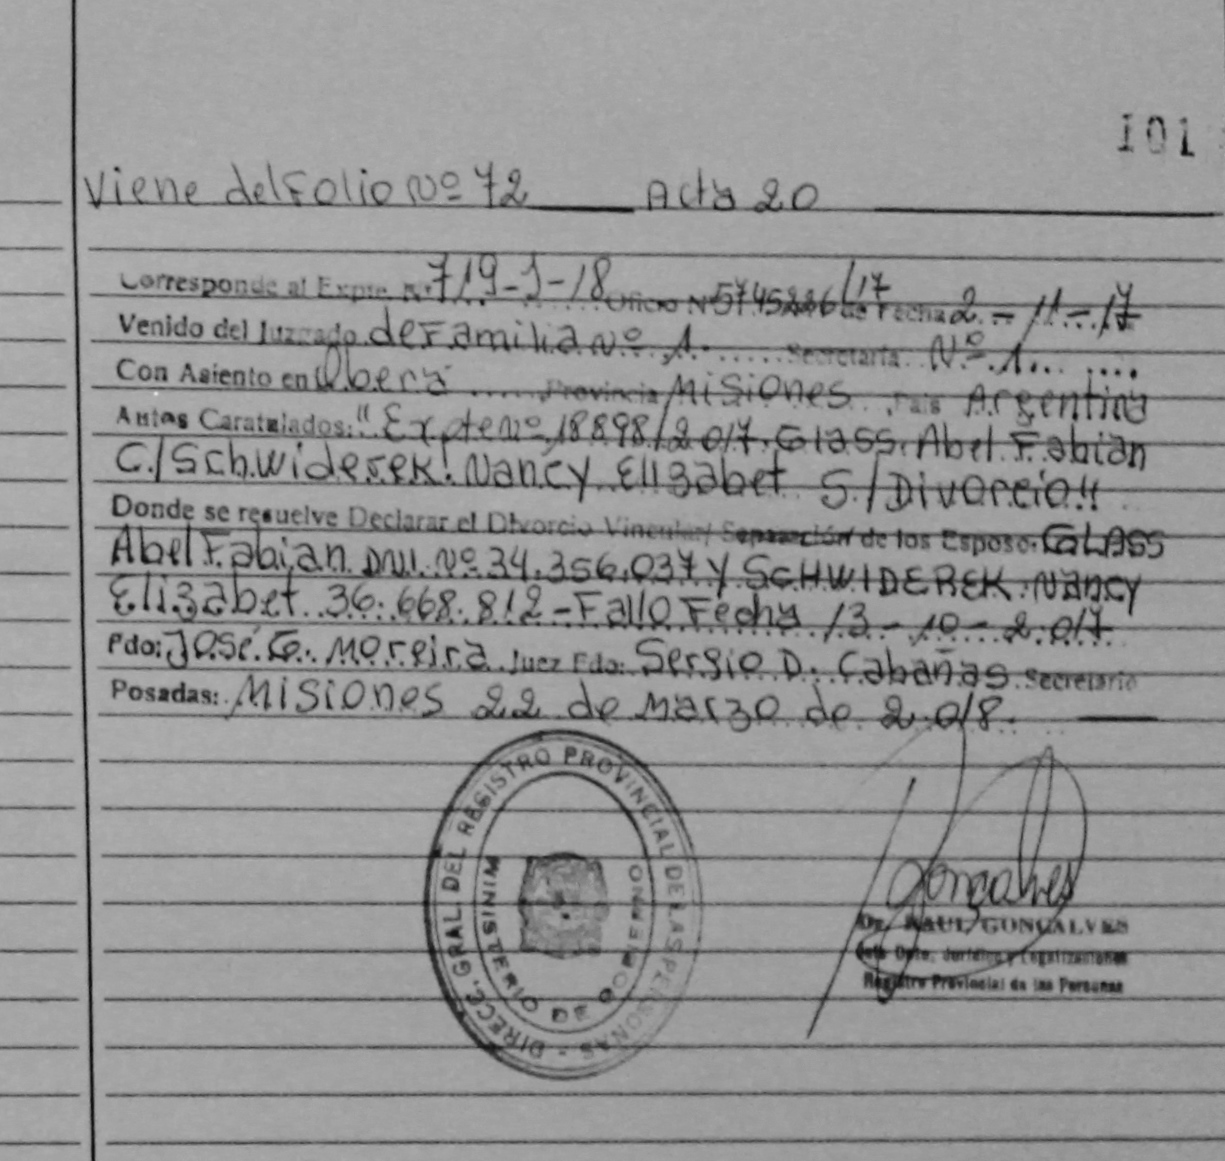 101
Viene del Folio Nº 72 Acta 20
Corresponde al Expte. Nº 719-J-18 Oficio Nº 5745286/17 de Fecha 2-11-17
Venido del Juzgado de Familia Nº 1. Secretaria. Nº 1.
Con Asiento en Obera Provincia Misiones País Argentina
Autos Caratulados: "Expte nº 18898/2017. Glass. Abel Fabian
C./Schwiderek. Nancy Elizabet S./Divorcio"
Donde se resuelve Declarar el Divorcio Vincular/ Separación de los Esposo: GLASS
Abel Fabian DNI. Nº 34.356.037 y SCHWIDEREK. Nancy
Elizabet. 36.668.812 - Fallo Fecha 13-10-2017.
Fdo: José G. Moreira Juez Fdo: Sergio D. Cabañas Secretario
Posadas: Misiones 22 de Marzo de 2018.
DIRECC. GRAL. DEL REGISTRO PROVINCIAL DE LAS PERSONAS -
MINISTERIO DE GOBIERNO
Gonçalves
Dr. RAUL GONÇALVES
Jefe Dpto. Jurídico y Legalizaciones
Registro Provincial de las Personas